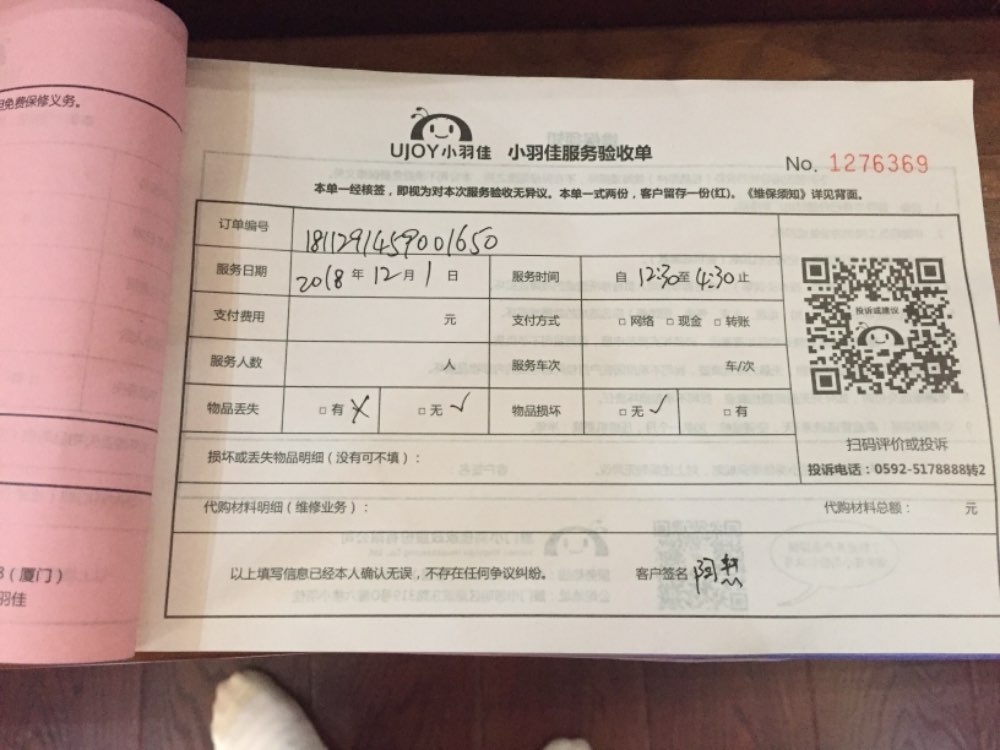 但免费保修义务。
UJOY小羽佳 小羽佳服务验收单
No. 1276369
本单一经核签，即视为对本次服务验收无异议。本单一式两份，客户留存一份(红)。《维保须知》详见背面。
订单编号 1811291459001650
服务日期 2018 年 12 月 1 日 服务时间 自 12:30 至 4:30 止
投诉或建议
支付费用 元 支付方式 □ 网络 □ 现金 □ 转账
服务人数 人 服务车次 车/次
物品丢失 □ 有 ✗ □ 无 ✓ 物品损坏 □ 无 ✓ □ 有
扫码评价或投诉
损坏或丢失物品明细（没有可不填）：
投诉电话：0592-5178888转2
代购材料明细（维修业务）： 代购材料总额： 元
以上填写信息已经本人确认无误，不存在任何争议纠纷。 客户签名 阿
（厦门）
羽佳